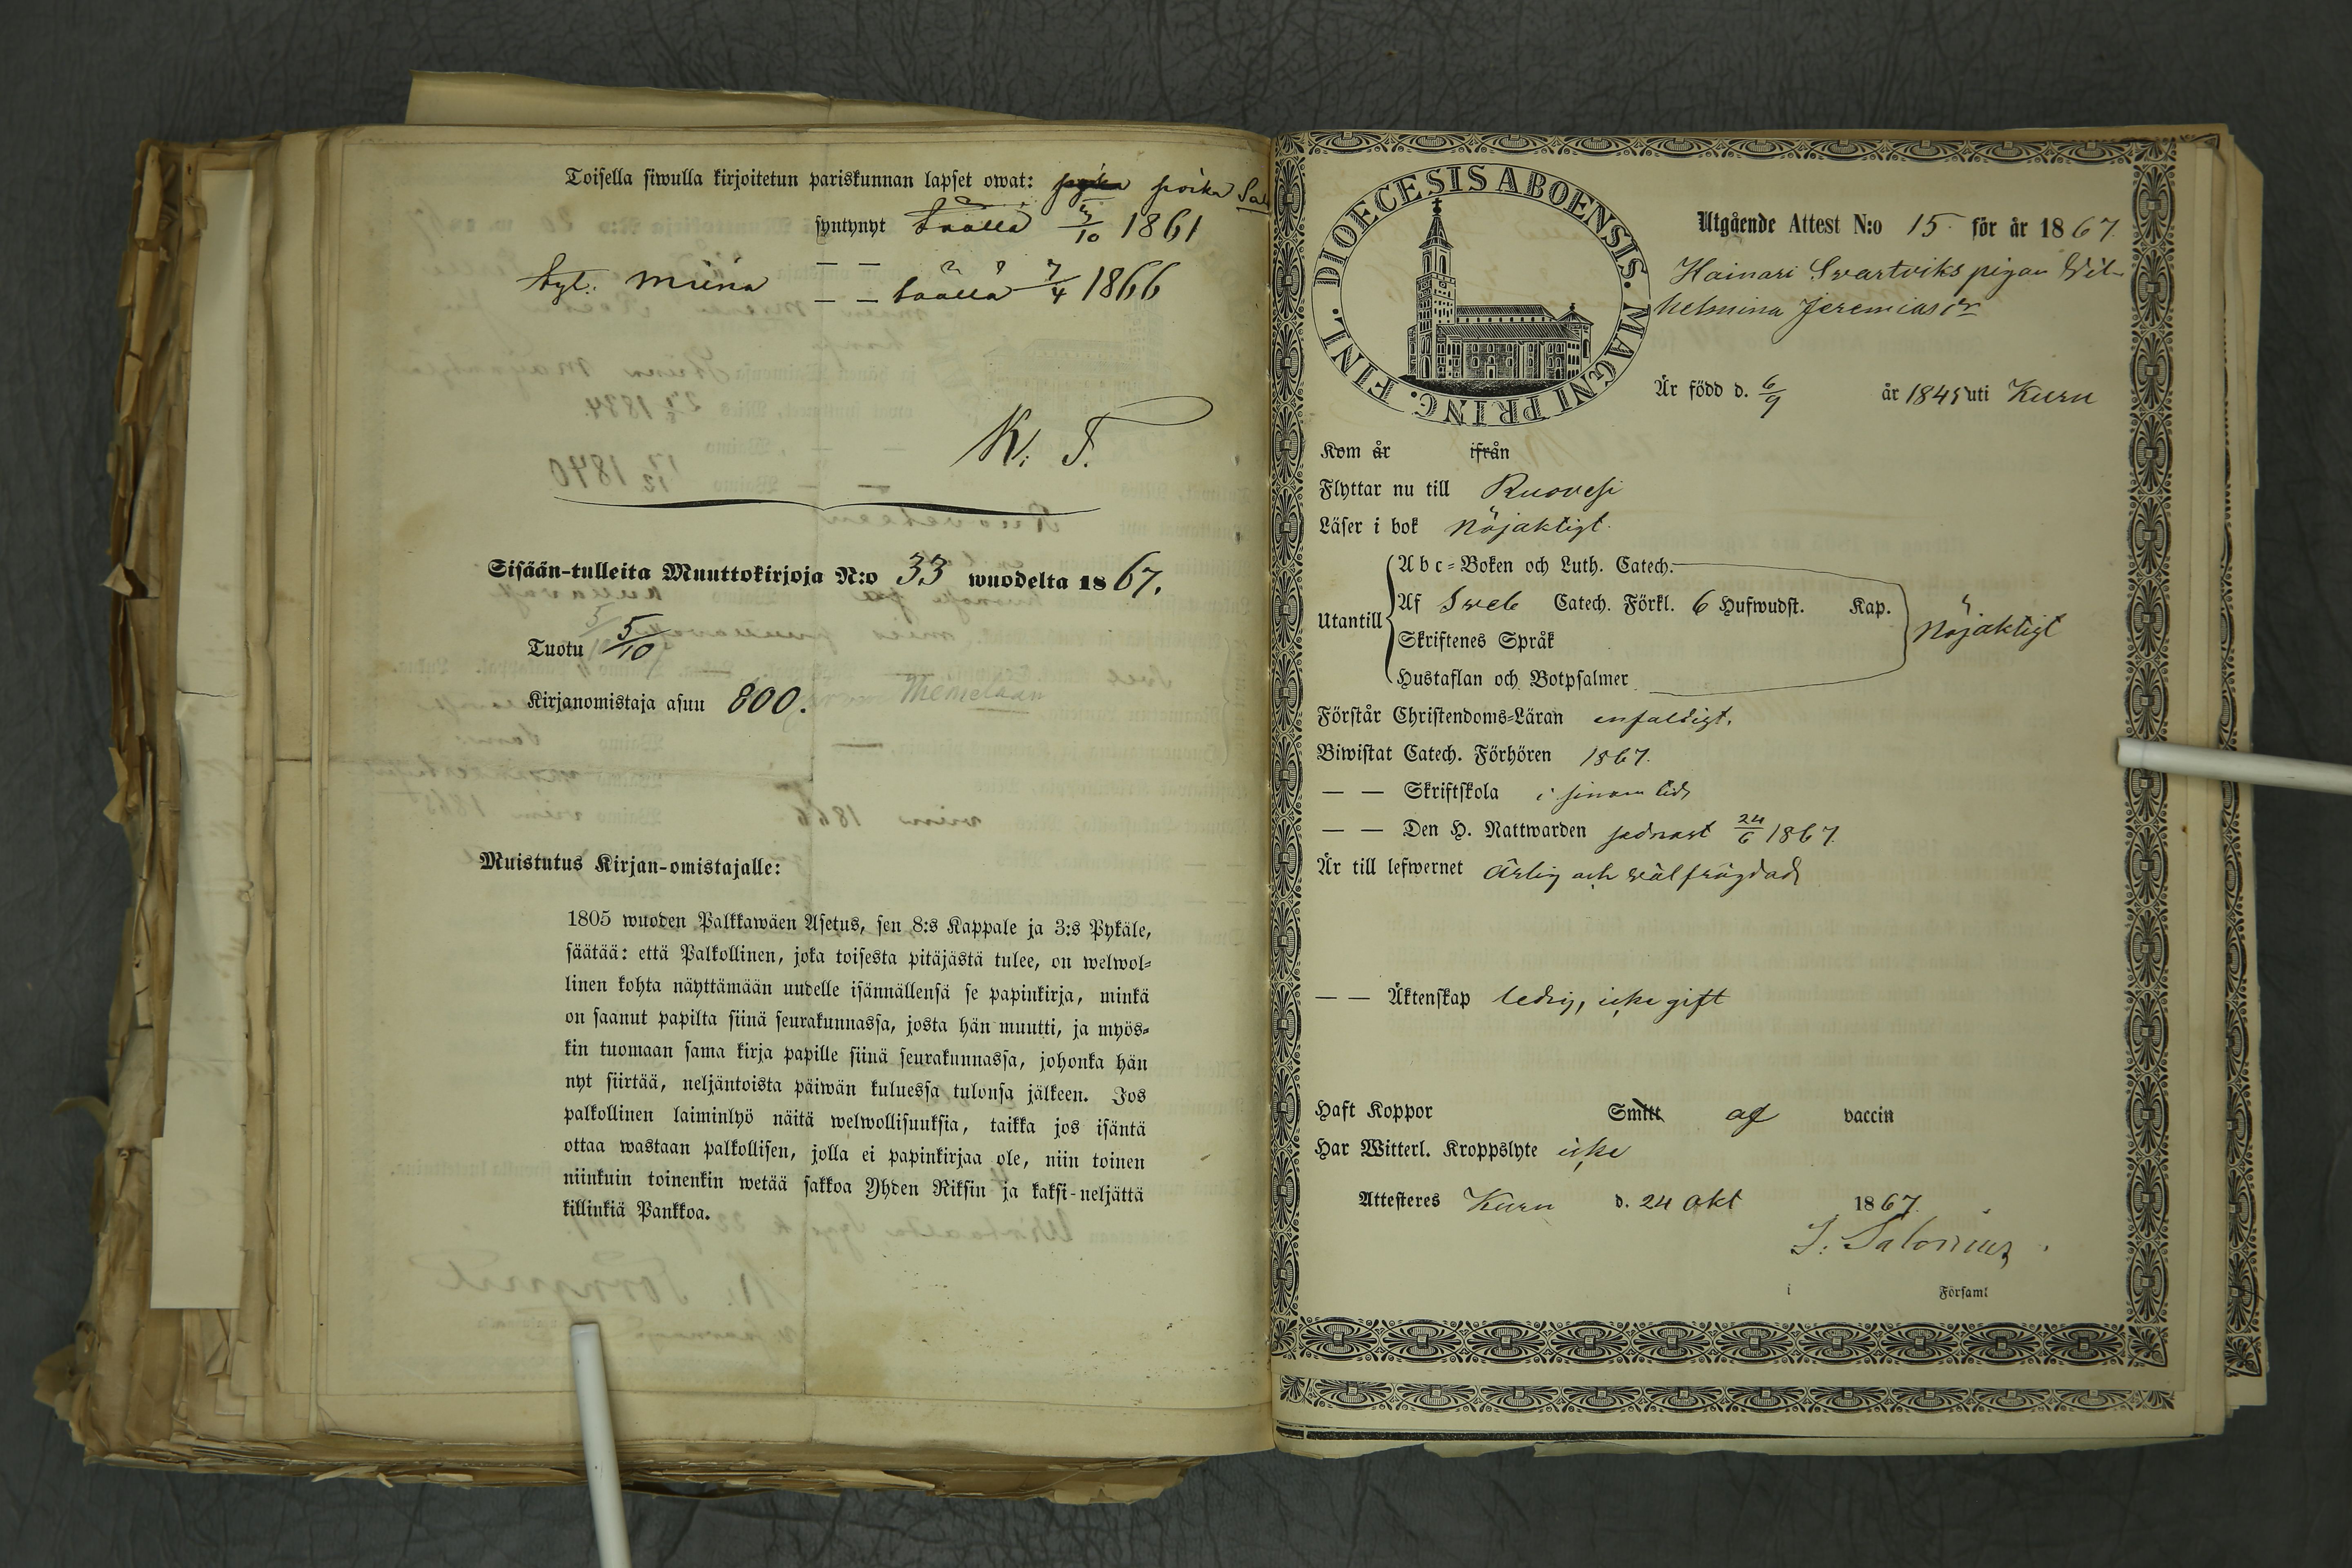 Toisella siwulla kirjoitetun pariskunnan lapset owat: poika Sal
syntynyt täällä 3/10 1861
tyt. Miina — — täällä 7/4 1866
K. T.
Sisään-tulleita Muuttokirjoja N:o 33 wuodelta 1867.
Tuotu 5/10
Kirjanomistaja asuu 800.
Muistutus Kirjan-omistajalle:
1805 wuoden Palkkawäen Asetus, sen 8:s Kappale ja 3:s Pykäle,
säätää: että Palkollinen, joka toisesta pitäjästä tulee, on welwol-
linen kohta näyttämään uudelle isännällensä se papinkirja, minkä
on saanut papilta siinä seurakunnassa, josta hän muutti, ja myös-
kin tuomaan sama kirja papille siinä seurakunnassa, johonka hän
nyt siirtää, neljäntoista päiwän kuluessa tulonsa jälkeen. Jos
palkollinen laiminlyö näitä welwollisuuksia, taikka jos isäntä
ottaa wastaan palkollisen, jolla ei papinkirjaa ole, niin toinen
niinkuin toinenkin wetää sakkoa Yhden Riksin ja kaksi-neljättä
killinkiä Pankkoa.
DIOECESIS ABOENSIS. MAGNI PRINC. FINL.
Utgående Attest N:o 15 för år 1867.
Hainari Svartviks pigan Wil-
helmina Jeremiasdr
Är född d. 6/9 år 1845 uti Kuru
Kom år ifrån
Flyttar nu till Ruovesi
Läser i bok Nöjaktigt.
Utantill
Abc-Boken och Luth. Catech.
Af Sveb Catech. Förkl. 6 Hufwudst. Kap.
Nöjaktigt
Skriftenes Språk
Hustaflan och Botpsalmer
Förstår Christendoms-Läran enfaldigt.
Biwistat Catech. Förhören 1867.
— — Skriftskola i sinom tid
— — Den H. Nattwarden sednast 24/6 1867.
Är till lefwernet ärlig och välfrägdad
— — Äktenskap ledig, icke gift
Haft Koppor Smitt af vaccin
Har Witterl. Kroppslyte icke
Attesteres Kuru d. 24 Okt 1867.
J. Salonius
i Församl